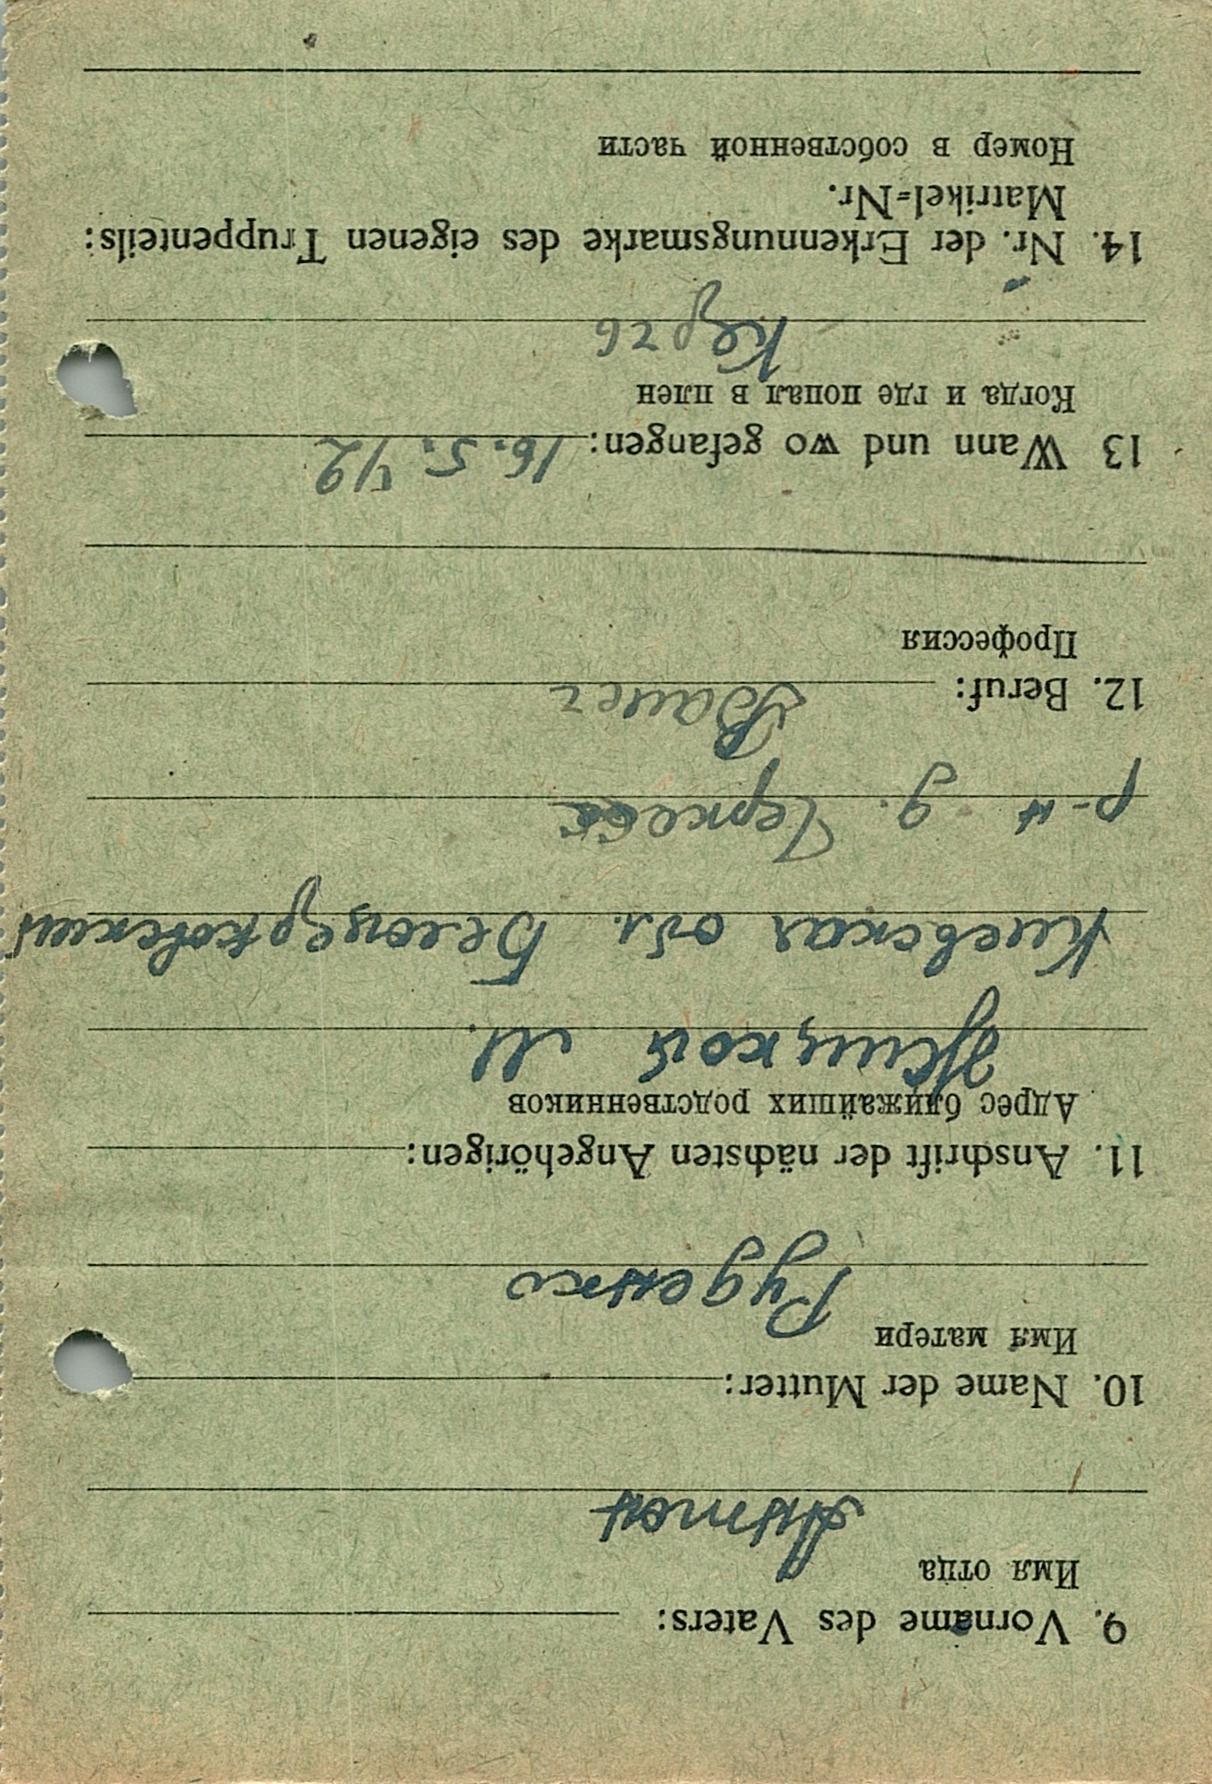 9. Vorname des Vaters:
Имя отца
Антон
10. Name der Mutter:
Имя матери
Руденко
11. Anschrift der nächsten Angehörigen:
Адрес ближайших родственников
М.
Киевская обл. Белоцерковский
р-н д.
12. Beruf:
Профессия
13 Wann und wo gefangen: 16.5.42
Когда и где попал в плен
Керчь
14. Nr. der Erkennungsmarke des eigenen Truppenteils:
Matrikel=Nr.
Номер в собственной части